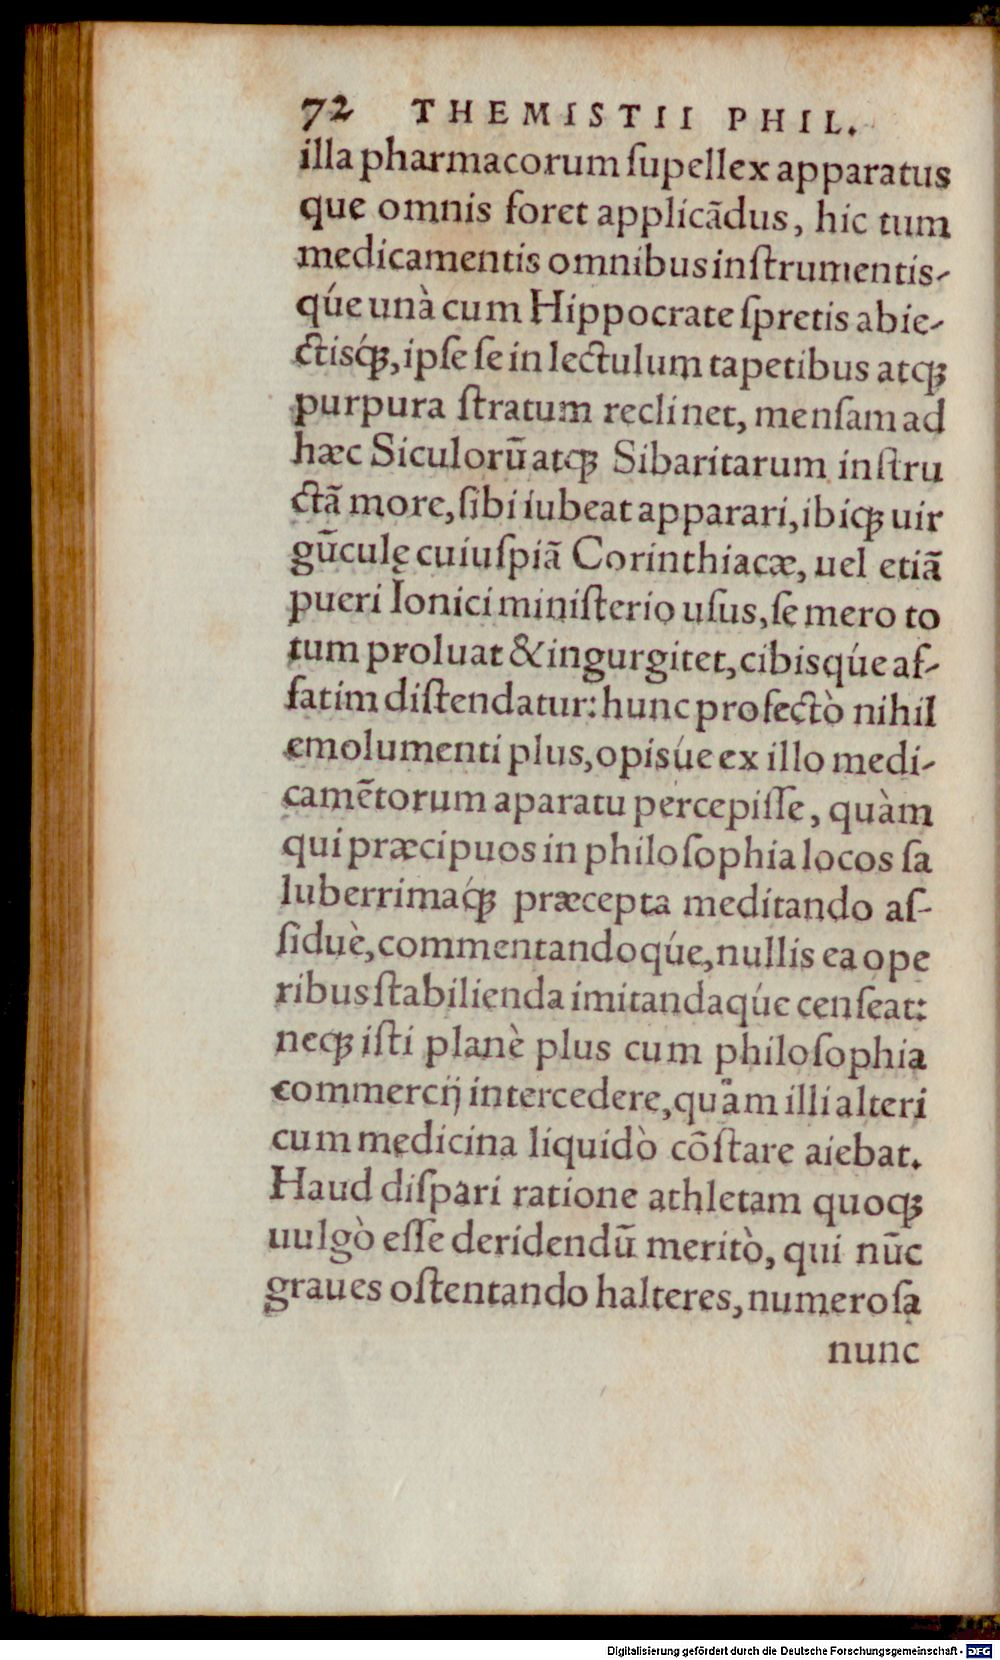 72 THEMISTII PHIL.
illa pharmacorum ſupellex apparatus
que omnis foret applicãdus, hic tum
medicamentis omnibus inſtrumentis-
q́ue unà cum Hippocrate ſpretis abie-
ctisq́ꝫ, ipſe ſe in lectulum tapetibus atqꝫ
purpura ſtratum reclinet, menſam ad
hæc Siculorũ atqꝫ Sibaritarum inſtru
ctã more, ſibi iubeat apparari, ibiqꝫ uir
gũculę cuiuſpiã Corinthiacæ, uel etiã
pueri Ionici miniſterio uſus, ſe mero to
tum proluat & ingurgitet, cibisq́ue af-
fatim diſtendatur: hunc profectò nihil
emolumenti plus, opisúe ex illo medi-
camẽtorum aparatu percepiſſe, quàm
qui præcipuos in philoſophia locos ſa
luberrimaq́ꝫ præcepta meditando aſ-
ſiduè, commentandoq́ue, nullis ea ope
ribus ſtabilienda imitandaq́ue cenſeat:
neqꝫ iſti planè plus cum philoſophia
commercij intercedere, quàm illi alteri
cum medicina liquidò cõſtare aiebat.
Haud diſpari ratione athletam quoqꝫ
uulgò eſſe deridendũ meritò, qui nũc
graues oſtentando halteres, numeroſa
nunc
Digitalisierung gefördert durch die Deutsche Forschungsgemeinschaft - DFG